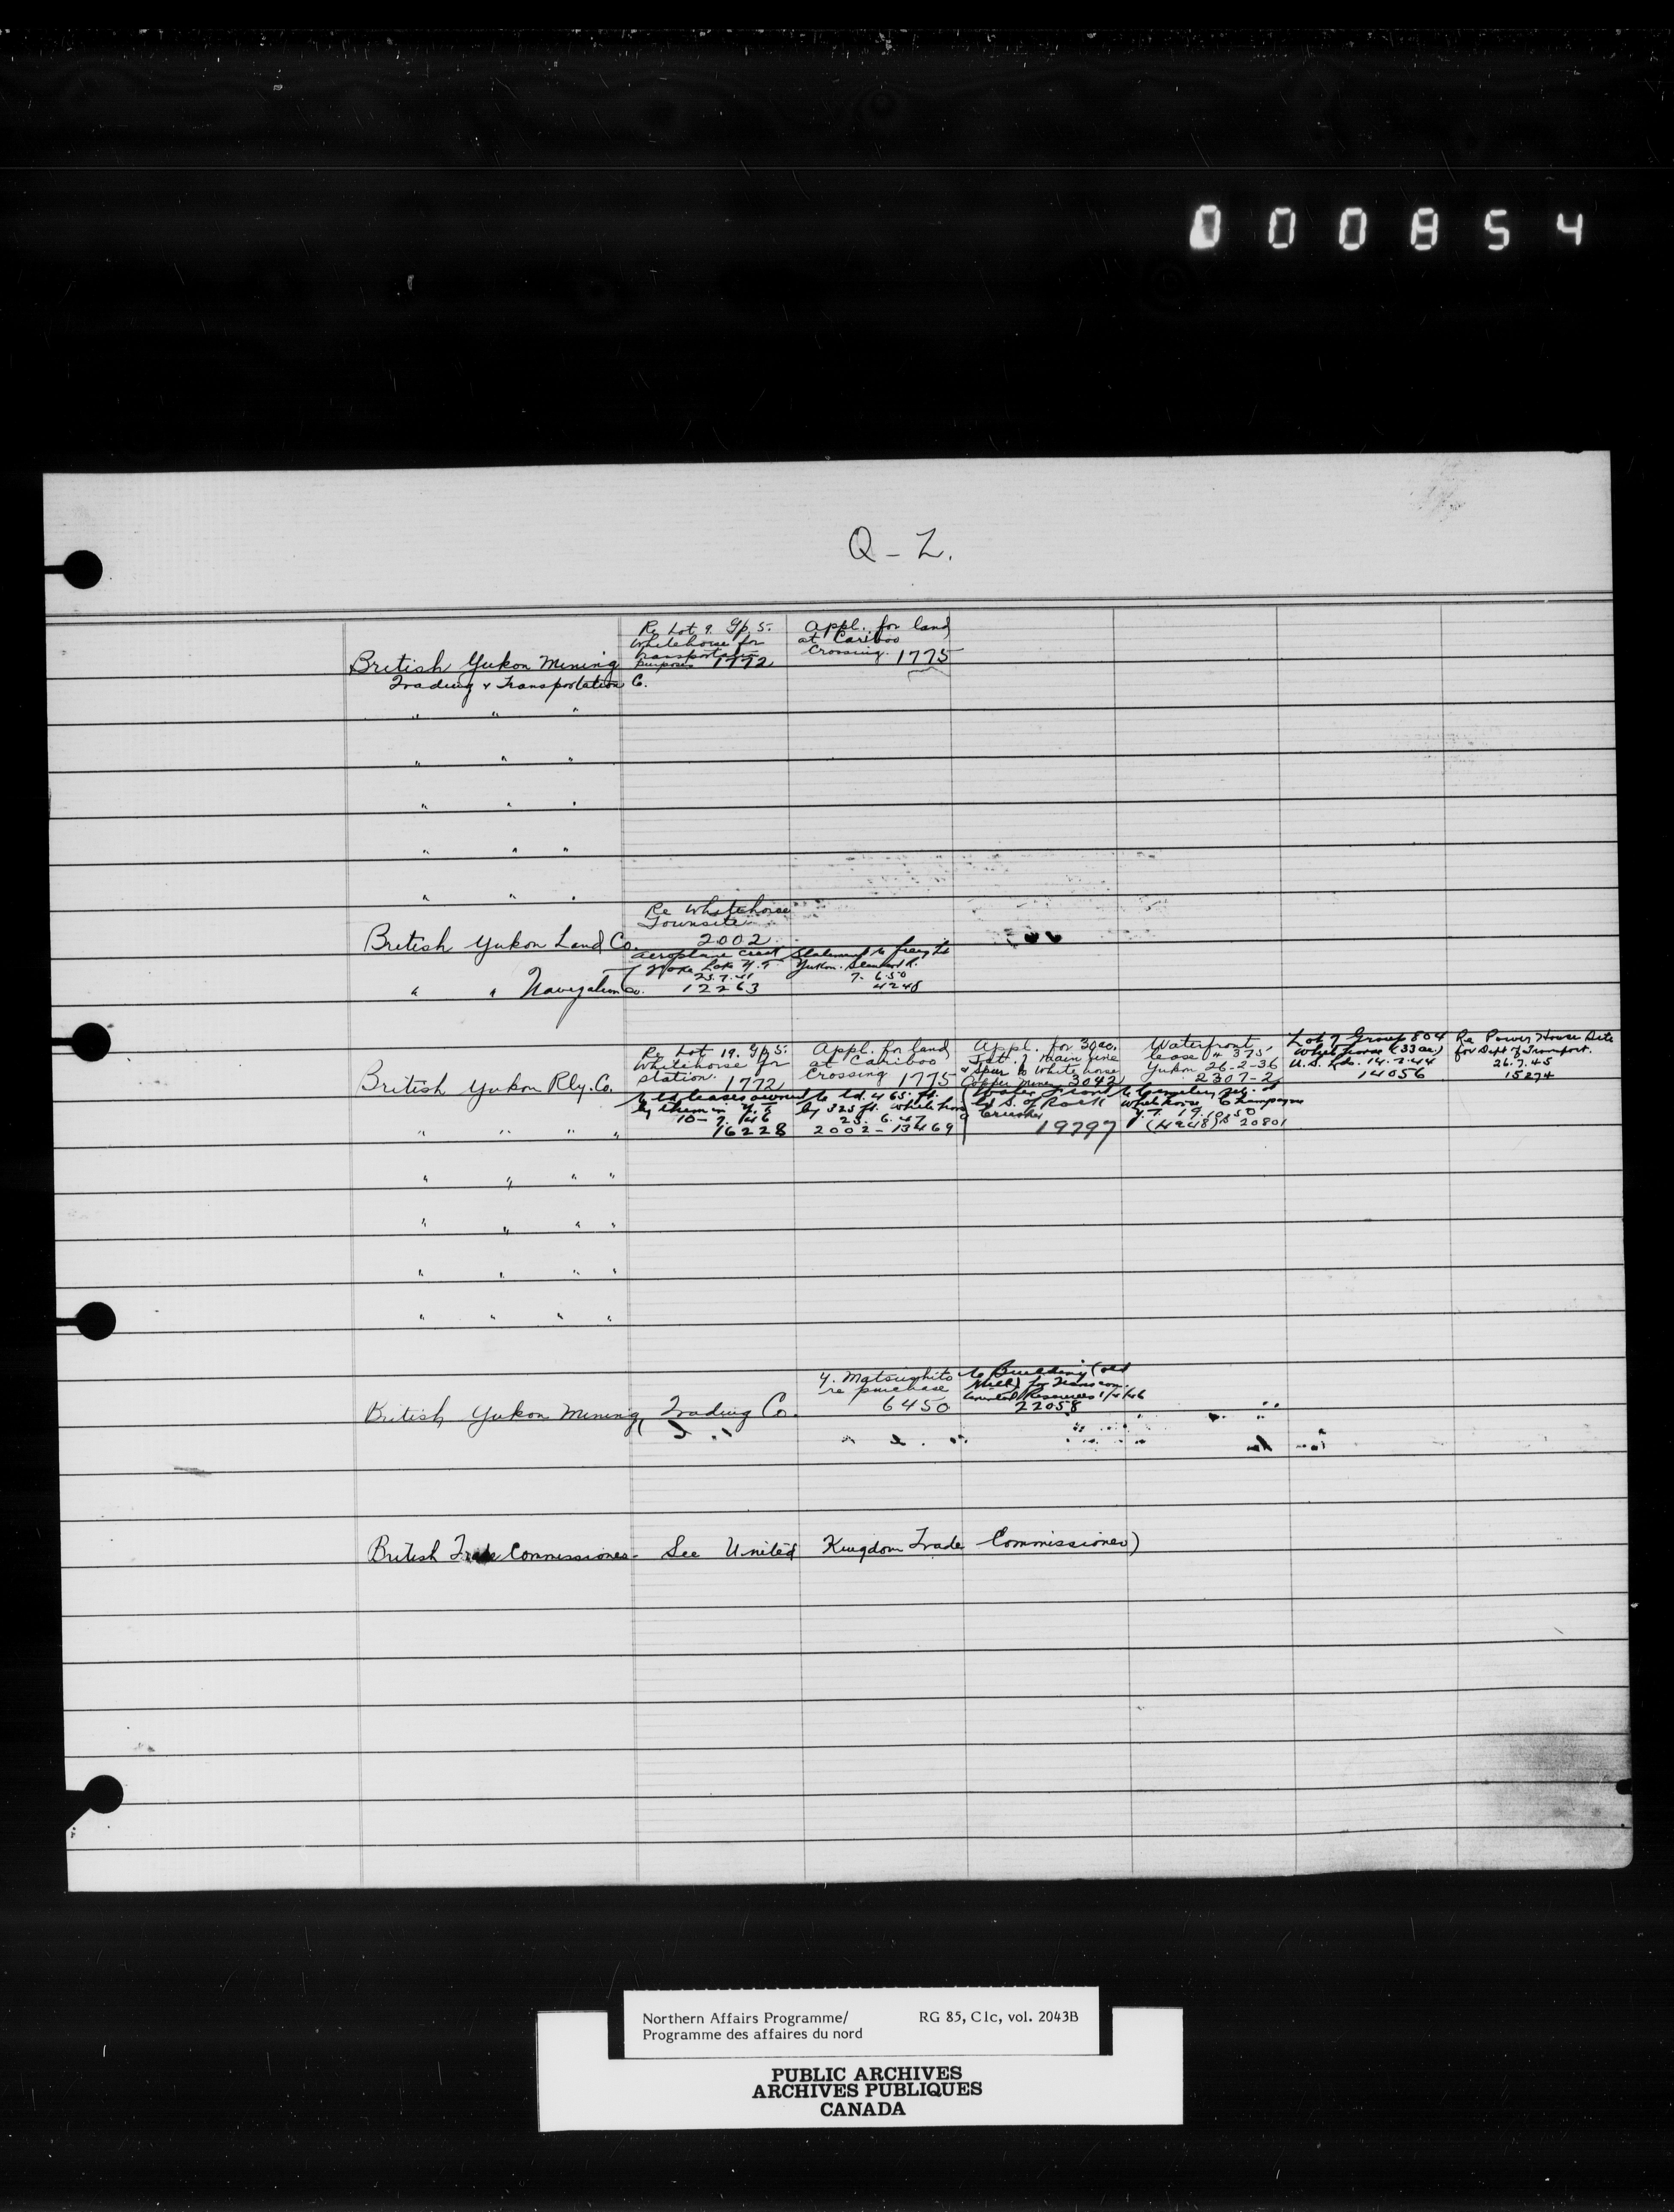 000854
Q - Z.
British Yukon Mining
Trading & Transportation Co.
Re Lot 9. Gp. 5.
Whitehorse for
transportation
purposes 1772
Appl. for land
at Cariboo
Crossing. 1775
" " "
" " "
" " "
" " "
" " "
British Yukon Land Co.
Re Whitehorse
Townsite
2002
" " Navigation Co.
Aeroplane Crash
Lake Y.T.
25.7.41
12263
Statement re freight
Yukon.
7. 6.50
4248
British Yukon Rly. Co.
Re Lot 19. Gp 5.
Whitehorse for
station. 1772
Appl. for land
at Cariboo
Crossing 1775
Appl. for 30 ac.
Jctt. of main line
& spur to White horse
Copper mines 3042
Waterfront
lease # 375
Yukon 26-2-36
2307-2
Lot 7 Group 804
Whitehorse (33 ac)
U.S. 14.7.44
14056
Re Power House Site
for Dept of Transport.
26.7.45
15274
" " " "
re ld leases owned
by them in Y.T.
10-7.46
16228
re ld. 465. ft.
by 325 ft. Whitehorse
25. 6. 47
2002-13469
Water Front
ld S. of Rock
Crusher
19797
re Cemetery
Whitehorse Champagne
Y.T. 19.10.50
(4248) 20801
" " " "
" " " "
" " " "
" " " "
British Yukon Mining, Trading Co.
Y. Matsushito
re purchase
6450
re Building (old
22058
British Trade Commissioner - See United Kingdom Trade Commissioner)
Northern Affairs Programme/ RG 85, C1c, vol. 2043B
Programme des affaires du nord
PUBLIC ARCHIVES
ARCHIVES PUBLIQUES
CANADA